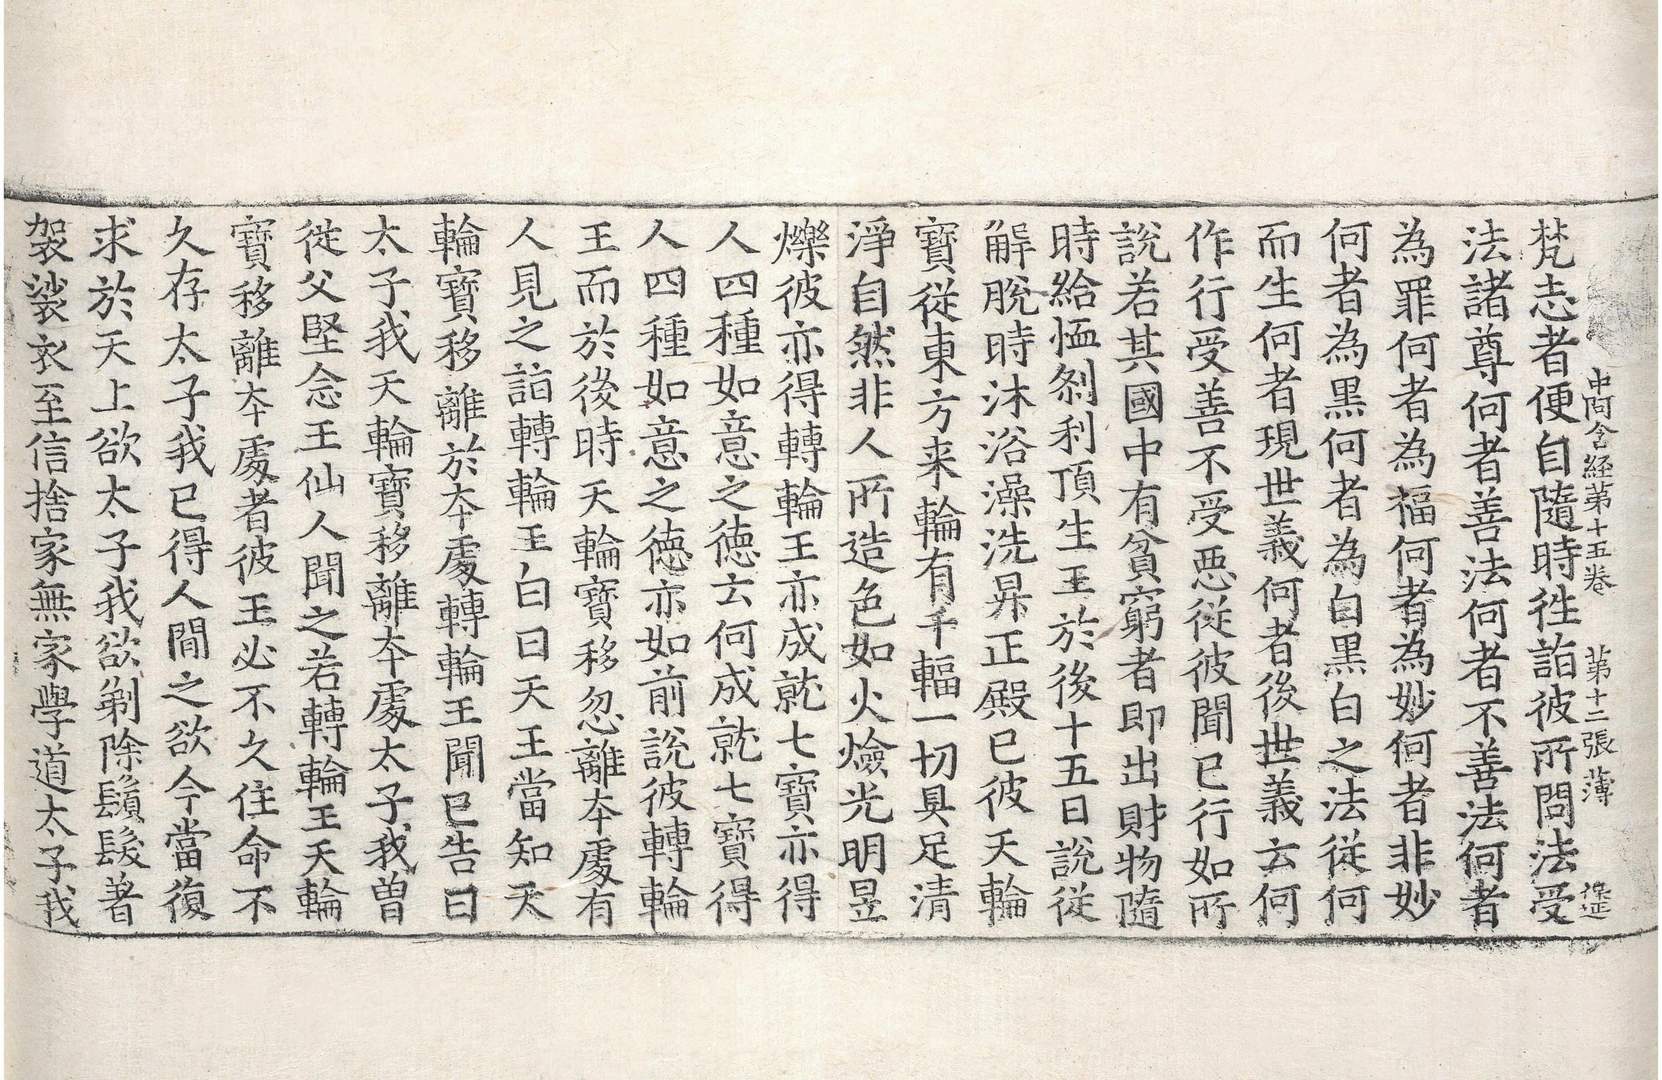 中阿含経第十五卷 第十二張 薄
梵志者便自隨時徃詣彼所問法受
法諸尊何者善法何者不善法何者
為罪何者為福何者為妙何者非妙
何者為黒何者為白黒白之法從何
而生何者現世義何者後世義云何
作行受善不受惡從彼聞已行如所
說若其國中有貧窮者即出財物隨
時給恤刹利頂生王於後十五日說從
解脫時沐浴澡洗昇正殿已彼天輪
寶從東方来輪有千輻一切具足清
淨自然非人所造色如火燄光明昱
爍彼亦得轉輪王亦成就七寶亦得
人四種如意之德云何成就七寶得
人四種如意之德亦如前說彼轉輪
王而於後時天輪寶移忽離本處有
人見之詣轉輪王白曰天王當知天
輪寶移離於本處轉輪王聞已告曰
太子我天輪寶移離本處太子我曽
從父堅念王仙人聞之若轉輪王天輪
寶移離本處者彼王必不久住命不
久存太子我已得人間之欲今當復
求於天上欲太子我欲剃除鬚髮著
袈裟衣至信捨家無家學道太子我